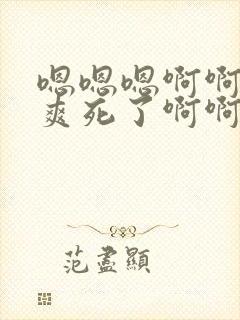 嗯嗯嗯啊啊
爽死了啊啊
范盡顯